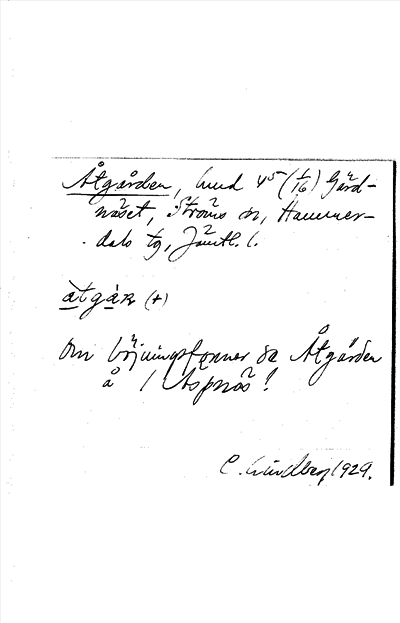 Åtgården, hmd 45 (1/16) Gärd-
näset, Ströms sn, Hammer-
dals tg, Jämtl. l.
àtgàɴ (+)
Om böjningsformer se Åtgärden
å 1 Aspnäs!
C. Lindberg 1929.